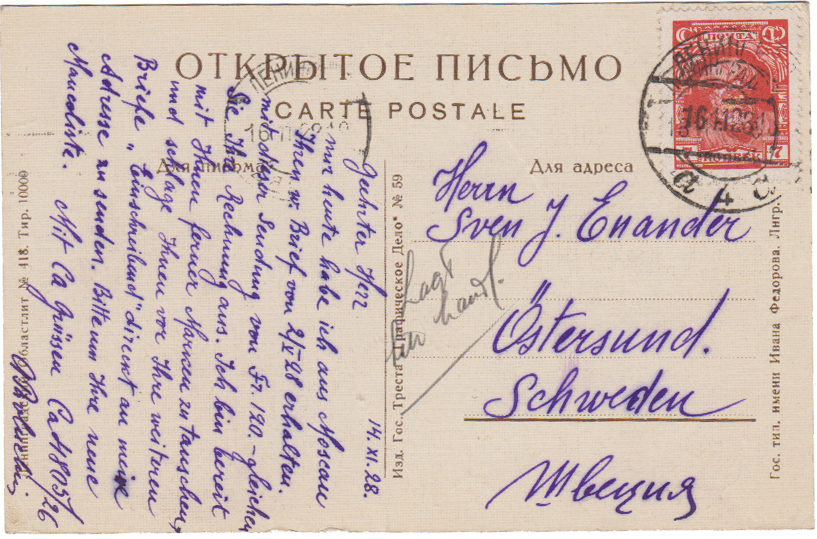 ОТКРЫТОЕ ПИСЬМО
CARTE POSTALE
Для письма
Для адреса
ПОЧТА
7
16 11 28
16 11 28
14. XI. 28.
Geehrter Herr
nur heute habe ich aus Moscau
Ihren w. Brief vom 2/X 28 erhalten.
mit der Sendung von Fr. 120.- gleichen
Sie Ihre Rechnung aus. Ich bin bereit
mit Ihnen ferner Marken zu tauschen,
und schlage Ihnen vor Ihre weiteren
Briefe "Einschreibend" direct an meine
Adresse zu senden. Bitte um Ihre neue
Mancoliste. Mit Ca Grüssen Ca 41805/26
Herrn
Sven J. Enander
Östersund.
Schweden
Швеция
Изд. Гос. Треста „Графическое Дело" № 59
областлит № 418. Тир. 10000
Гос. тип. имени Ивана Федорова. Лнгр.